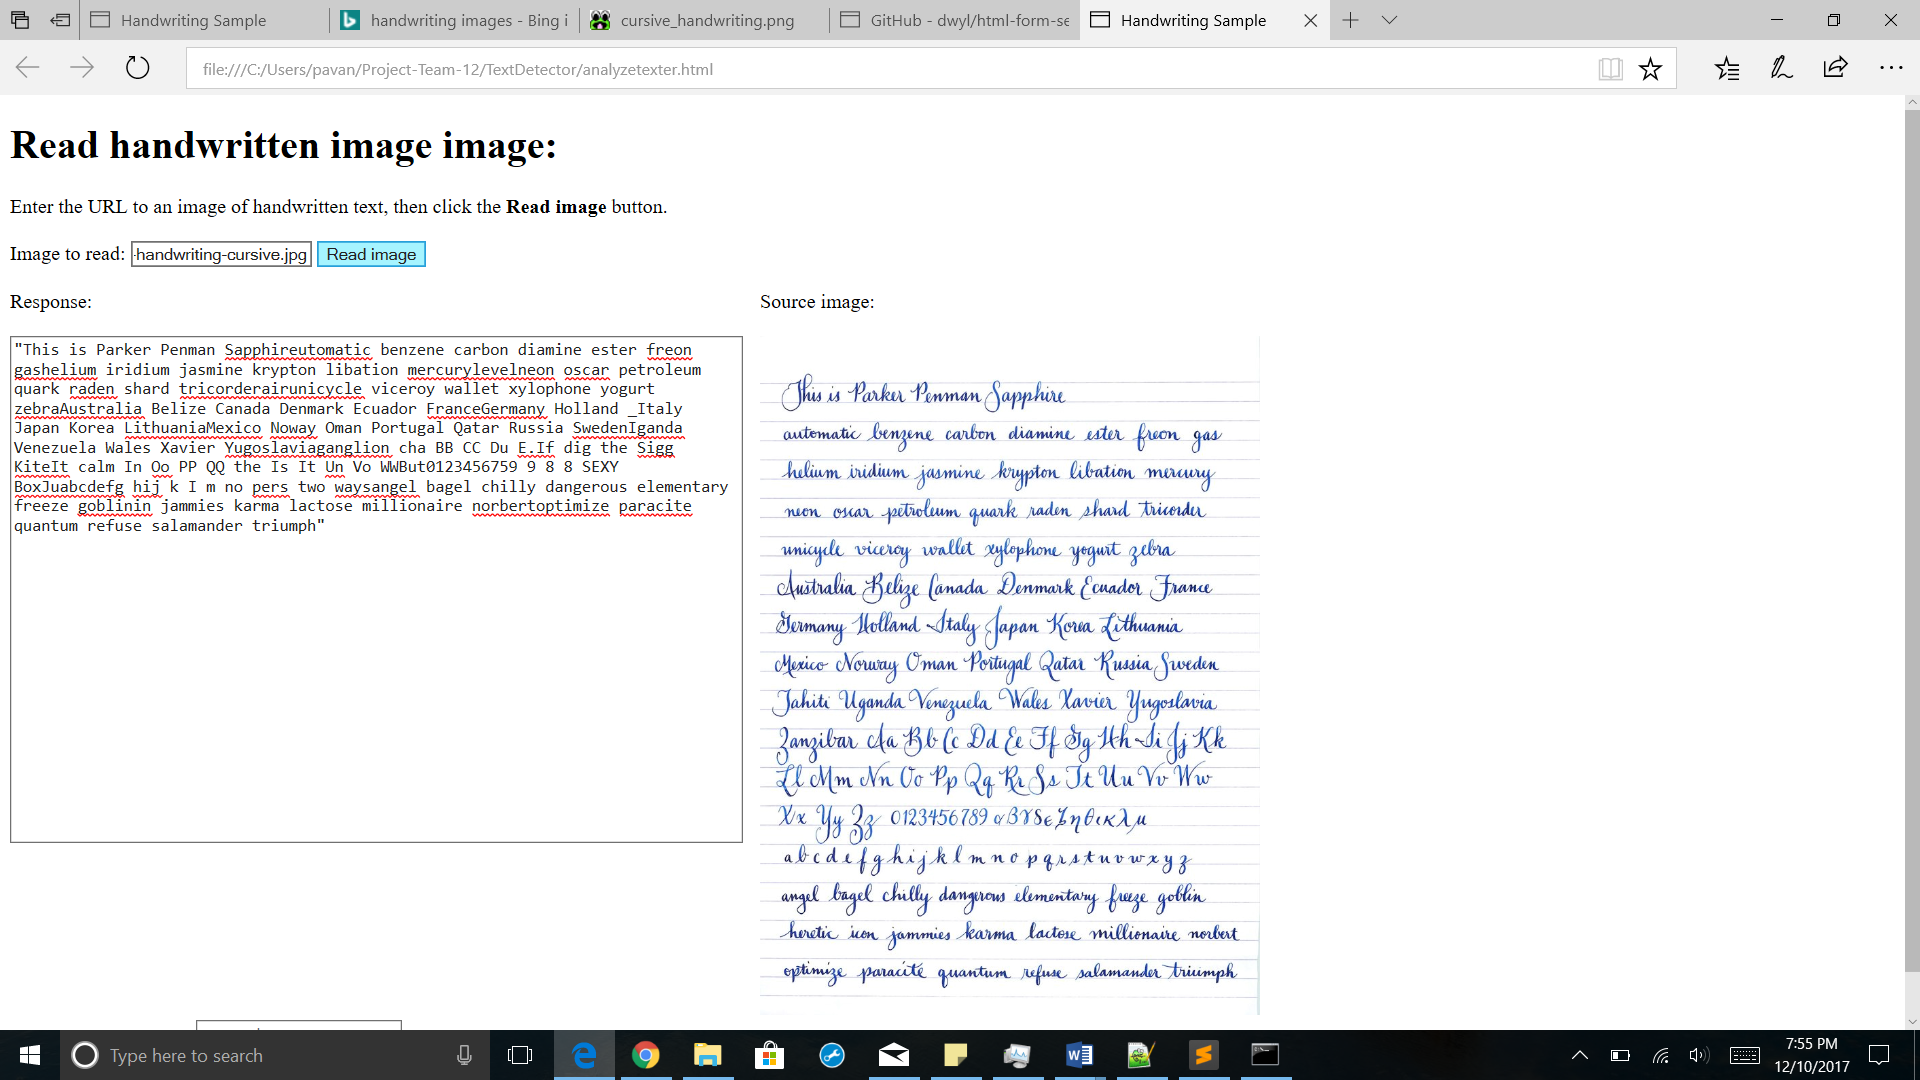 Handwriting Sample
handwriting images - Bing i
cursive_handwriting.png
GitHub - dwyl/html-form-se
Handwriting Sample
file:///C:/Users/pavan/Project-Team-12/TextDetector/analyzetexter.html
Read handwritten image image:
Enter the URL to an image of handwritten text, then click the Read image button.
Image to read: -handwriting-cursive.jpg Read image
Response:
"This is Parker Penman Sapphireutomatic benzene carbon diamine ester freon
gashelium iridium jasmine krypton libation mercurylevelneon oscar petroleum
quark raden shard tricorderairunicycle viceroy wallet xylophone yogurt
zebraAustralia Belize Canada Denmark Ecuador FranceGermany Holland _Italy
Japan Korea LithuaniaMexico Noway Oman Portugal Qatar Russia SwedenIganda
Venezuela Wales Xavier Yugoslaviaganglion cha BB CC Du E.If dig the Sigg
KiteIt calm In Oo PP QQ the Is It Un Vo WWBut0123456759 9 8 8 SEXY
BoxJuabcdefg hij k I m no pers two waysangel bagel chilly dangerous elementary
freeze goblinin jammies karma lactose millionaire norbertoptimize paracite
quantum refuse salamander triumph"
Source image:
This is Parker Penman Sapphire
automatic benzene carbon diamine ester freon gas
helium iridium jasmine krypton libation mercury
neon oscar petroleum quark raden shard tricorder
unicycle viceroy wallet xylophone yogurt zebra
Australia Belize Canada Denmark Ecuador France
Germany Holland Italy Japan Korea Lithuania
Mexico Norway Oman Portugal Qatar Russia Sweden
Tahiti Uganda Venezuela Wales Xavier Yugoslavia
Zanzibar Aa Bb Cc Dd Ee Ff Gg Hh Ii Jj Kk
Ll Mm Nn Oo Pp Qq Rr Ss Tt Uu Vv Ww
Xx Yy Zz 0123456789 αβγδεζηθικλμ
a b c d e f g h i j k l m n o p q r s t u v w x y z
angel bagel chilly dangerous elementary freeze goblin
heretic icon jammies karma lactose millionaire norbert
optimize paracite quantum refuse salamander triumph
Type here to search
7:55 PM
12/10/2017